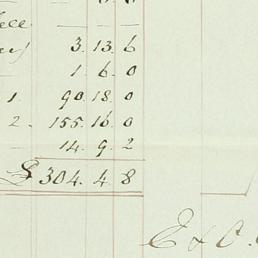 3. 13. 6
1. 6. 0
1. 90. 18. 0
2. 155. 16. 0
14. 9. 2
£ 304. 4. 8
E & C.